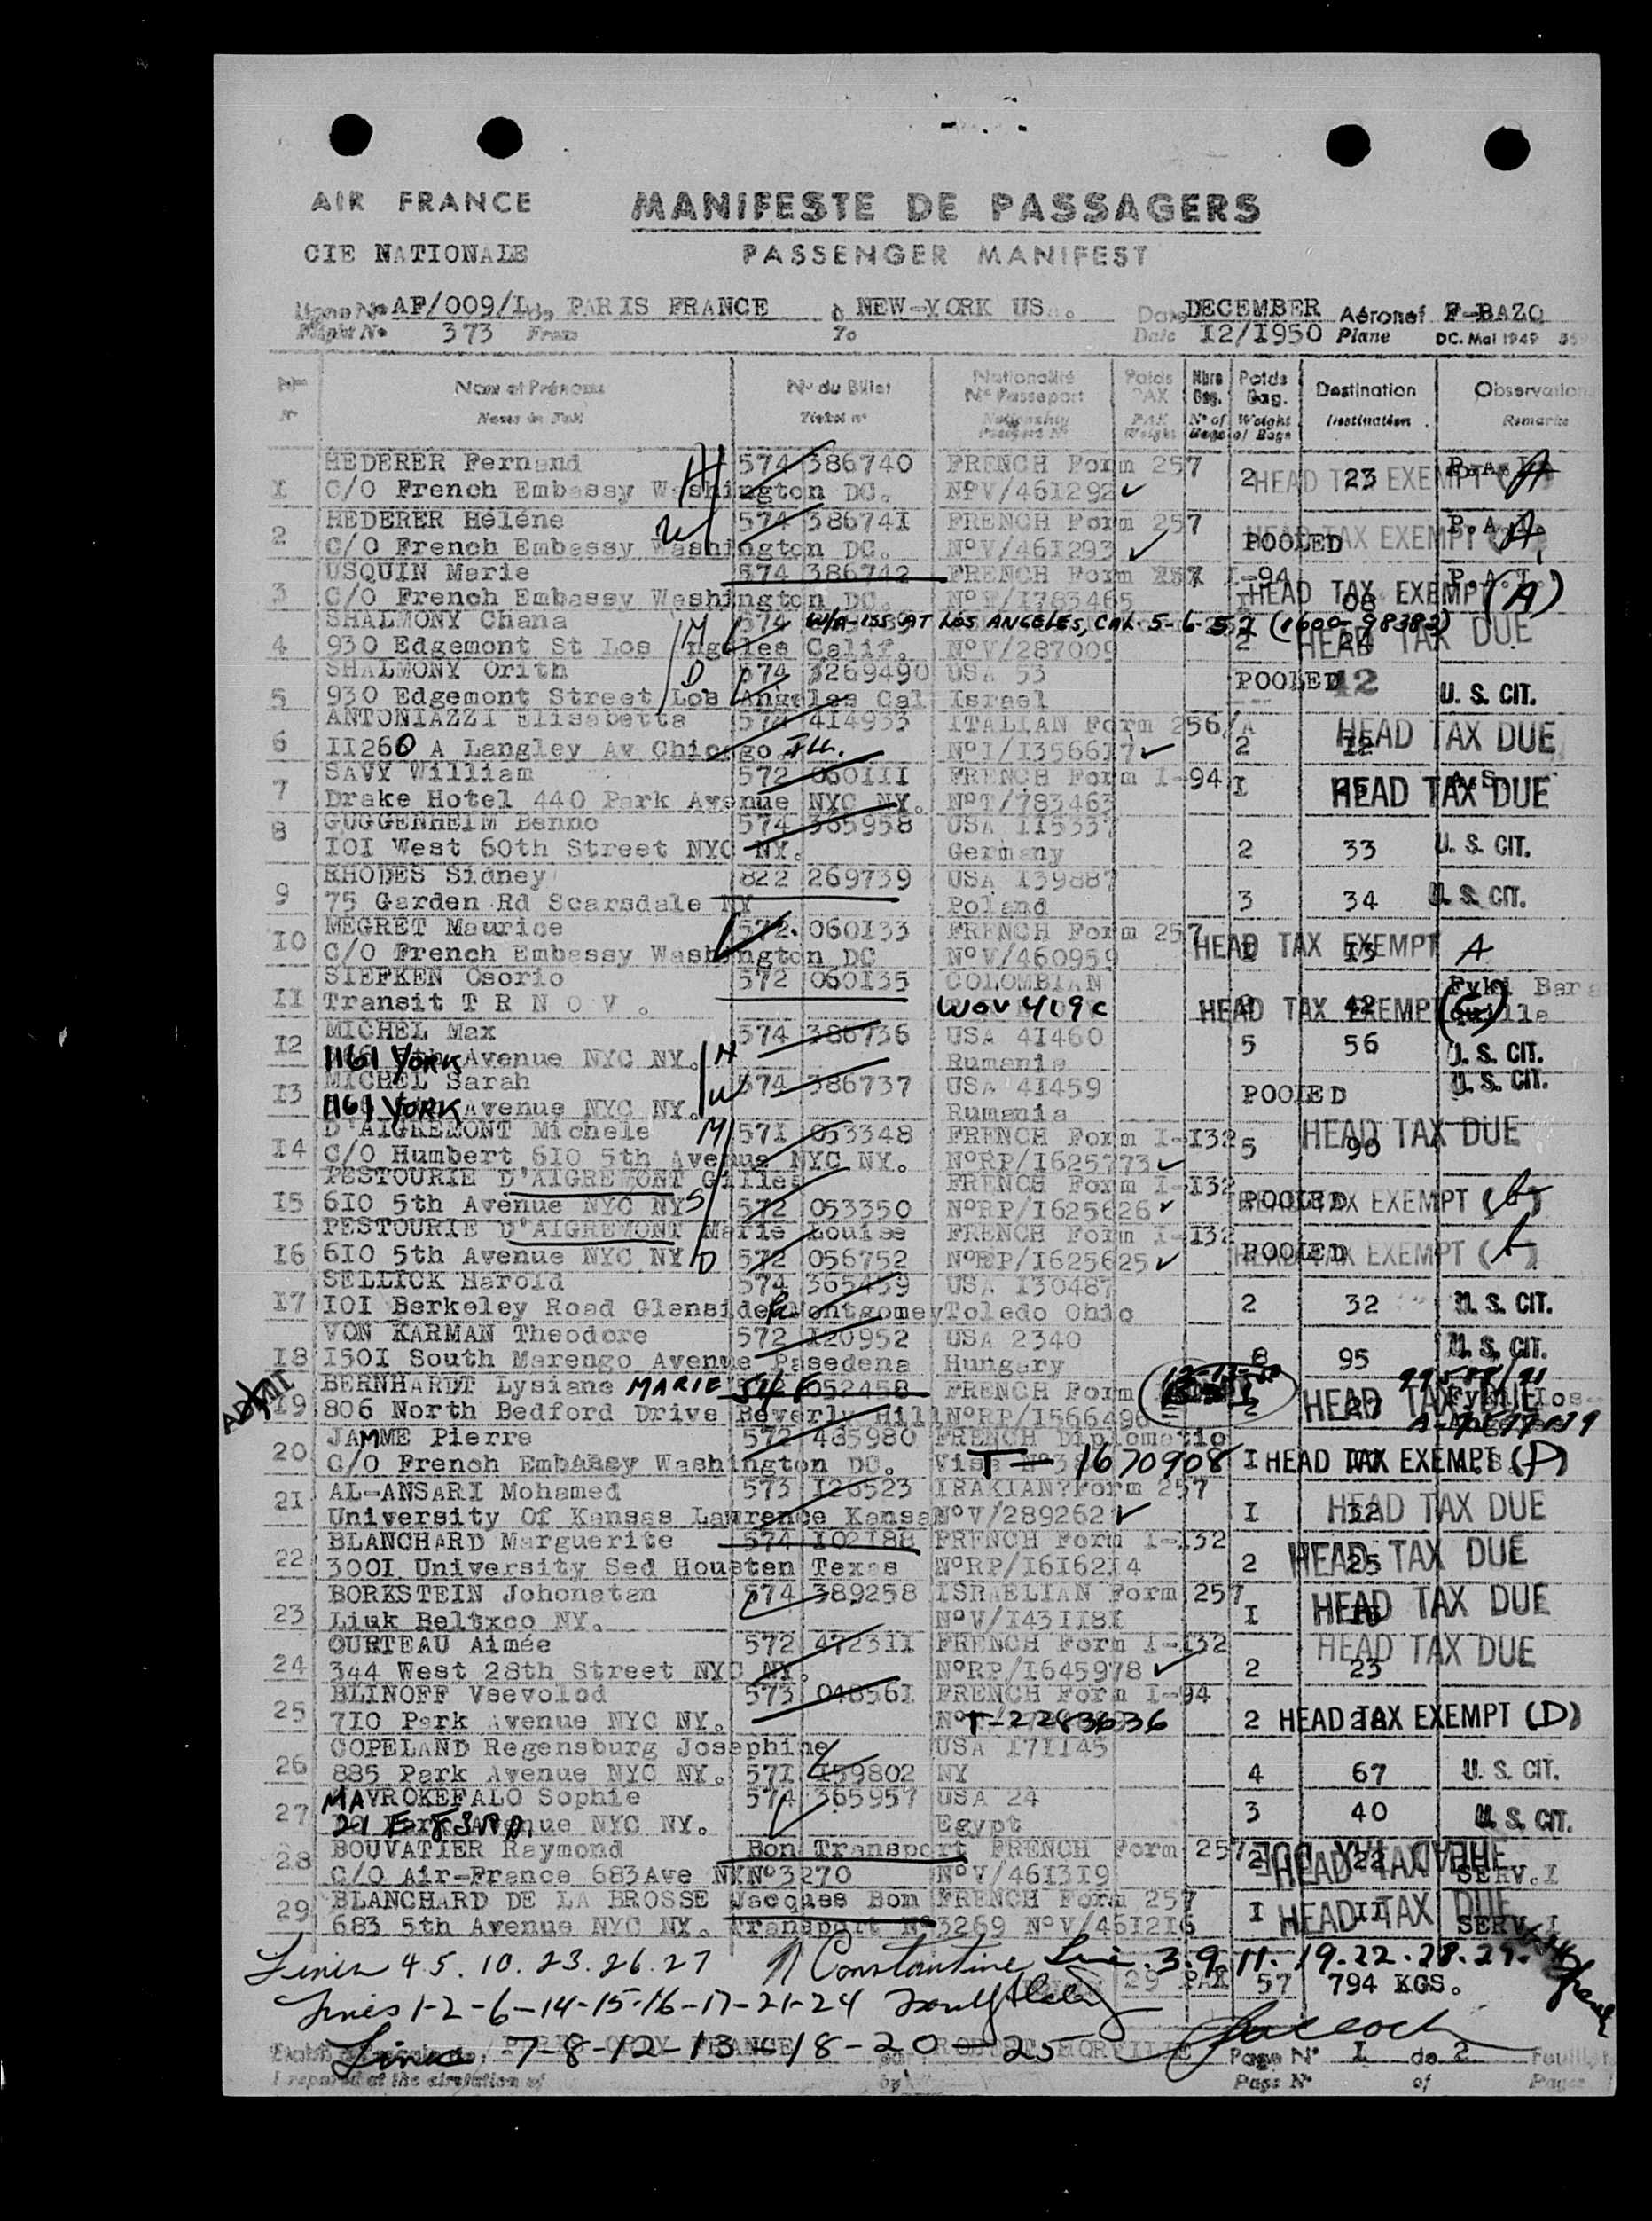 AIR FRANCE MANIFESTE DE PASSAGERS
CIE NATIONALE PASSENGER MANIFEST
Ligne No AF/009/I de PARIS FRANCE à NEW-YORK US. Date DECEMBER Aéronef F-BAZO
Flight No 373 From To Date I2/I950 Plane DC. Mai 1949
No Nom et Prénoms No du Billet Nationalité No Passeport Poids PAX Nbre Bag. Poids Bag. Destination Observation
Names in Full Ticket no Nationality Passport No PAX Weight No of Bags Weight of Bags Destination Remarks
HEDERER Fernand H 574 386740 FRENCH Form 257 2 23 HEAD TAX EXEMPT P.A.I. A
I C/O French Embassy Washington DC. NoV/46I292
HEDERER Héléne W 574 38674I FRENCH Form 257 HEAD TAX EXEMPT P.A.I. A
2 C/O French Embassy Washington DC. NoV/46I293 POOLED
USQUIN Marie 574 386742 FRENCH Form I-94 HEAD TAX EXEMPT (A) P.A.I.
3 C/O French Embassy Washington DC. I783465 08
SHALMONY Chana M 574 W/A-ISS AT LOS ANGELES, CAL. 5-6-52 (1600-98382) HEAD TAX DUE
4 930 Edgemont St Los Angeles Calif. NoV/287009 2 24
SHALMONY Orith D 574 3269490 USA 53 POOLED 12
5 930 Edgemont Street Los Angeles Cal Israel U. S. CIT.
ANTONIAZZI Elisabetta 574 4I4933 ITALIAN Form 256/A HEAD TAX DUE
6 II260 A Langley Av Chicago Ill. NoI/I3566I7 2 I2
SAVY William 572 060III FRENCH Form I-94 I HEAD TAX DUE
7 Drake Hotel 440 Park Avenue NYC NY. NoT/783463
GUGGENHEIM Benno 574 365958 USA II5337
8 IOI West 60th Street NYC NY. Germany 2 33 U. S. CIT.
RHODES Sidney 822 269739 USA I39887
9 75 Garden Rd Scarsdale NY Poland 3 34 U. S. CIT.
MEGRET Maurice 572 060I33 FRENCH Form 257 HEAD TAX EXEMPT A
I0 C/O French Embassy Washington DC NoV/460959 I3
SIEFKEN Osorio 572 060I35 COLOMBIAN
II Transit T R N O V . WOV 409c HEAD TAX EXEMPT (C) 42
MICHEL Max H 574 386736 USA 4I460
I2 1161 YORK Avenue NYC NY. Rumania 5 56 U. S. CIT.
MICHEL Sarah W 574 386737 USA 4I459 U. S. CIT.
I3 1161 YORK Avenue NYC NY. Rumania POOLED
D'AIGREMONT Michele M 57I 053348 FRENCH Form I-I32 HEAD TAX DUE
I4 C/O Humbert 6I0 5th Avenue NYC NY. NoRP/I625773 5 90
PESTOURIE D'AIGREMONT Gilles FRENCH Form I-I32
I5 6I0 5th Avenue NYC NY S 572 053350 NoRP/I625626 POOLED HEAD TAX EXEMPT
PESTOURIE D'AIGREMONT Marie Louise FRENCH Form I-I32
I6 6I0 5th Avenue NYC NY D 572 056752 NoRP/I625625 POOLED HEAD TAX EXEMPT
SELLICK Harold 574 365459 USA I30487
I7 IOI Berkeley Road Glenside Montgomey Toledo Ohio 2 32 U. S. CIT.
VON KARMAN Theodore 572 I20952 USA 2340 U. S. CIT.
I8 I50I South Marengo Avenue Pasedena Hungary 8 95
BERNHARDT Lysiane MARIE 54 F 052458 FRENCH Form
I9 806 North Bedford Drive Beverly Hill NoRP/I566490 2 27 HEAD TAX DUE
JAMME Pierre 572 465980 FRENCH Diplomatic
20 C/O French Embassy Washington DC. Visa T-1670908 I HEAD TAX EXEMPT
AL-ANSARI Mohamed 573 I26523 IRAKIAN?Form 257
2I University Of Kansas Lawrence Kansas NoV/289262 I 32 HEAD TAX DUE
BLANCHARD Marguerite 574 I02I88 FRENCH Form I-I32
22 300I University Sed Housten Texas NoRP/I6I62I4 2 25 HEAD TAX DUE
BORKSTEIN Johonatan 574 389258 ISRAELIAN Form 257
23 Liuk Beltxco NY. NoV/I43II8I I HEAD TAX DUE
OURTEAU Aimée 572 4723II FRENCH Form I-I32 HEAD TAX DUE
24 344 West 28th Street NYC NY. NoRP/I645978 2 23
BLINOFF Vsevolod 573 04856I FRENCH Form I-94
25 7I0 Park Avenue NYC NY. T-2283636 2 HEAD TAX EXEMPT (D)
COPELAND Regensburg Josephine USA I7II45
26 885 Park Avenue NYC NY. 57I I59802 NY 4 67 U. S. CIT.
MAVROKEFALO Sophie 574 365957 USA 24
27 21 E 83rd Avenue NYC NY. Egypt 3 40 U. S. CIT.
BOUVATIER Raymond Bon Transport FRENCH Form 257
28 C/O Air-France 683Ave NY No3270 NoV/46I3I9 2 22 HEAD TAX DUE SERV.I
BLANCHARD DE LA BROSSE Jacques Bon FRENCH Form 257
29 683 5th Avenue NYC NY. Transport No3269 NoV/46I2I6 I II HEAD TAX DUE SERV.I
Lines 4.5.10.23.26.27 Constantine Line.3.9.11.19.22.28.29.
29 PAX 57 794 KGS.
Lines 1-2-6-14-15-16-17-21-24
Lines 7-8-12-13-18-20-25 Page No I de 2 Feuillets
Prepared at the circulation of by Page No of Pages